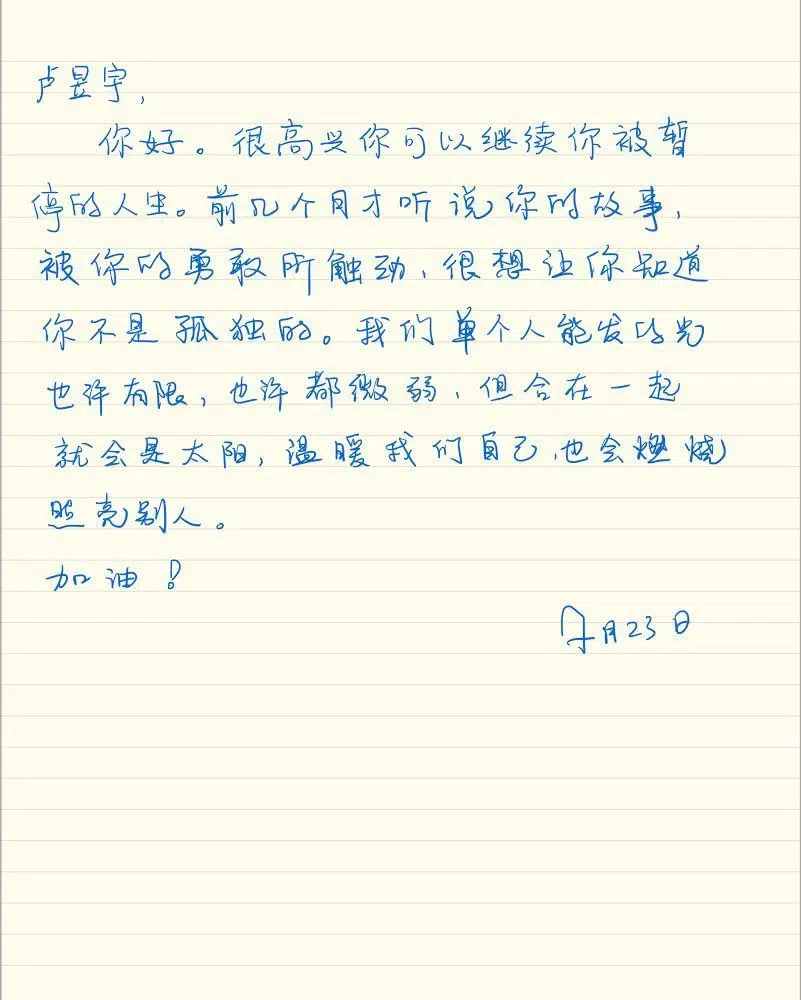 卢昱宇,
你好。很高兴你可以继续你被暂
停的人生。前几个月才听说你的故事,
被你的勇敢所触动,很想让你知道
你不是孤独的。我们单个人能发的光
也许有限,也许都微弱,但合在一起
就会是太阳,温暖我们自己,也会燃烧
照亮别人。
加油!
7月23日